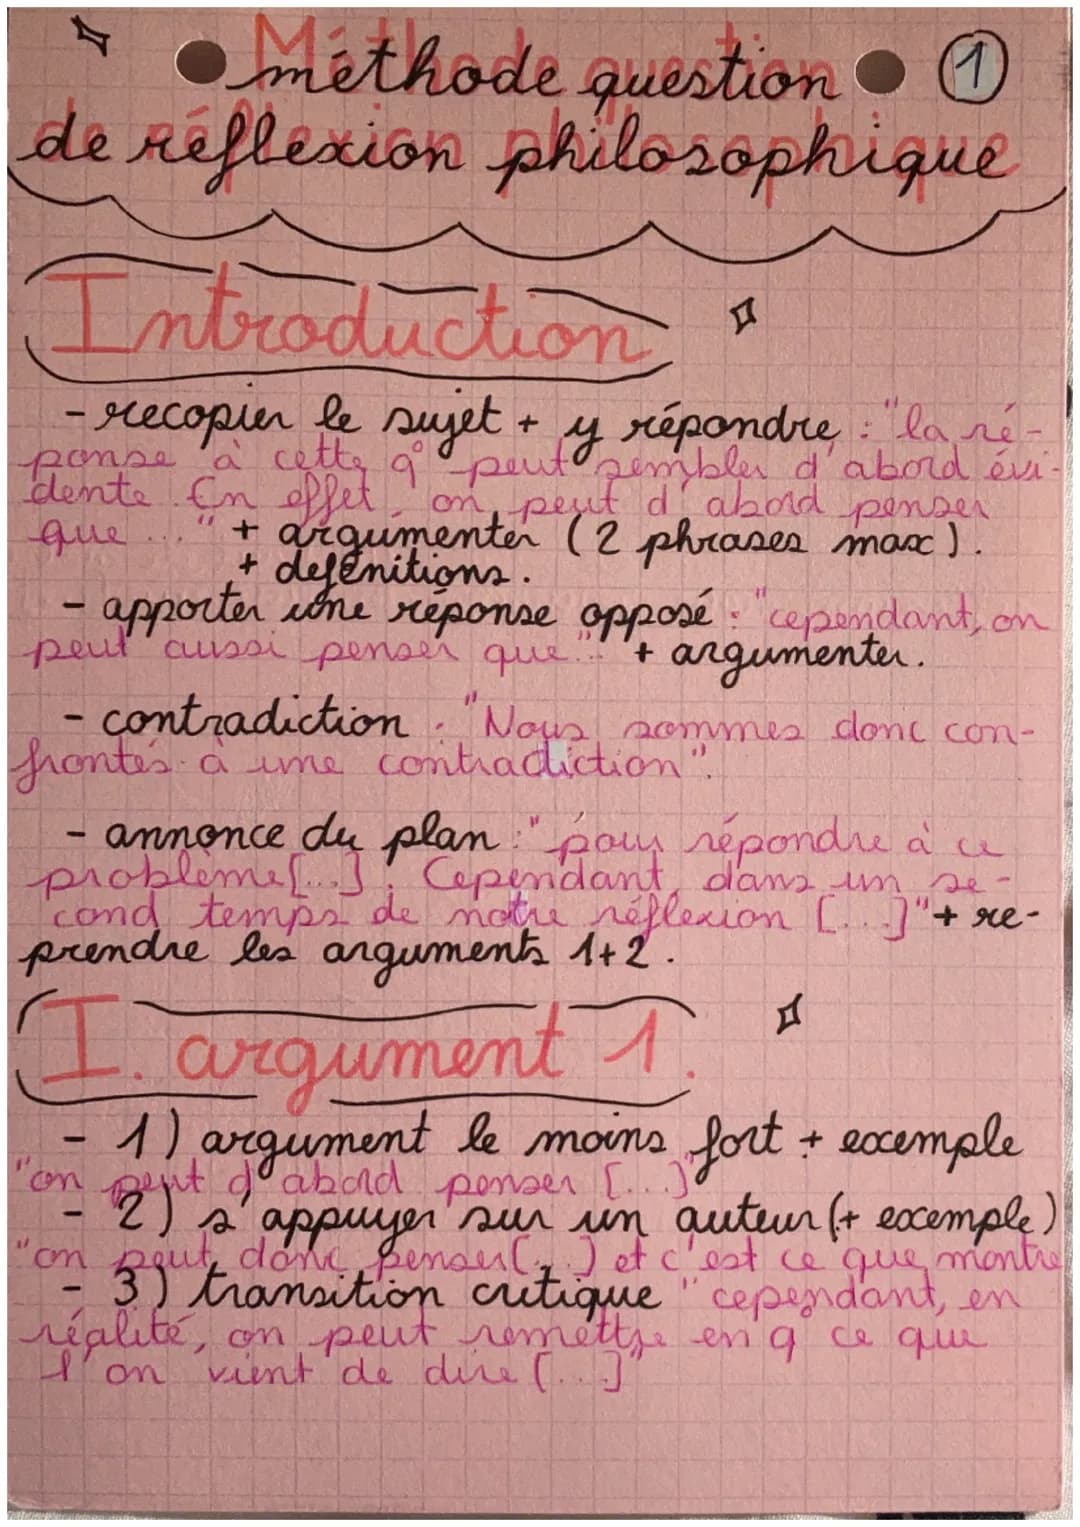 méthode question 1
de réflexion philosophique
Introduction
- recopier le sujet + y répondre : "la ré-
ponse à cette q° peut sembler d'abord évi-
dente. En effet, on peut d'abord penser
que ..." + argumenter (2 phrases max).
+ défénitions.
- apporter une réponse opposé : "cependant, on
peut aussi penser que..." + argumenter.
- contradiction : "Nous sommes donc con-
frontés à une contradiction".
- annonce du plan : "pour répondre à ce
problème[...]. Cependant, dans un se-
cond temps de notre réflexion [...]" + re-
prendre les arguments 1+2.
I. argument 1.
- 1) argument le moins fort + exemple
"on peut d'abord penser [...]"
- 2) s'appuyer sur un auteur (+ exemple)
"on peut donc penser(...) et c'est ce que montre
- 3) transition critique "cependant, en
réalité, on peut remettre en q° ce que
l'on vient de dire [...]"